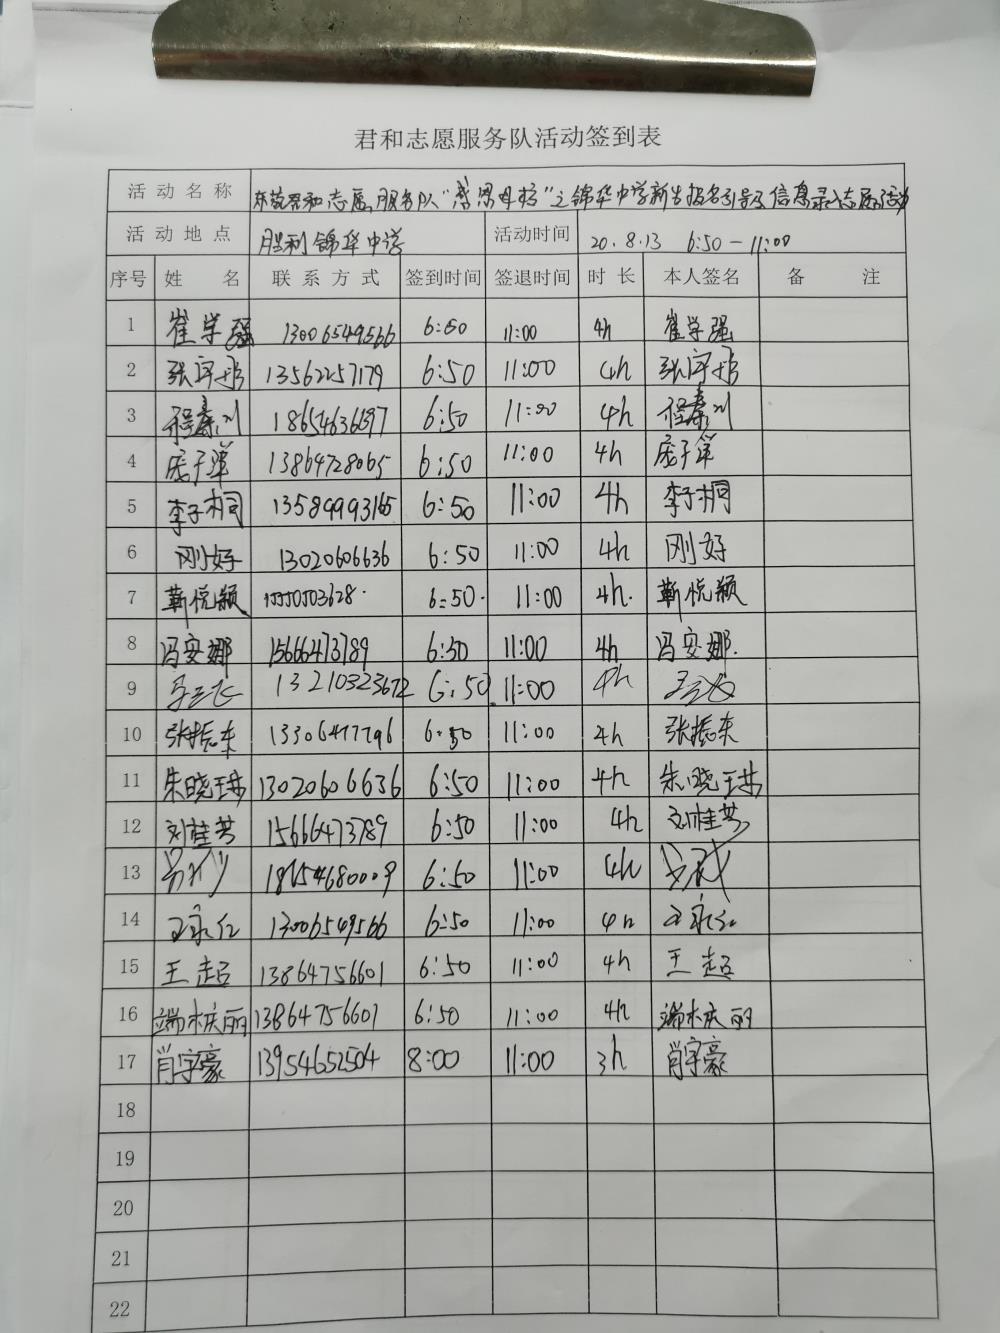 君和志愿服务队活动签到表
活动名称 东营君和志愿服务队“感恩母校”之锦华中学新生报名引导及信息录入志愿活动
活动地点 胜利锦华中学 活动时间 20.8.13 6:50-11:00
序号 姓名 联系方式 签到时间 签退时间 时长 本人签名 备注
1 崔学强 13006549566 6:50 11:00 4h 崔学强
2 张宇彤 13562257179 6:50 11:00 4h 张宇彤
3 程秦川 6:50 11:00 4h 程秦川
4 庞子潇 13864728065 6:50 11:00 4h
5 李子桐 13589993165 6:50 11:00 4h 李子桐
6 刚好 13020606636 6:50 11:00 4h 刚好
7 靳悦颖 6:50. 11:00 4h. 靳悦颖
8 冯安娜 15666473789 6:50 11:00 4h 冯安娜.
9 13210323672 6:50 11:00 4h
10 张振东 13306477796 6:50 11:00 4h 张振东
11 朱晓琳 13020606636 6:50 11:00 4h 朱晓琳
12 刘桂芳 15666473789 6:50 11:00 4h 刘桂芳
13 18654680009 6:50 11:00 4h
14 王永仁 13006549566 6:50 11:00 4h 王永仁
15 王超 13864756601 6:50 11:00 4h 王超
16 端木庆丽 13864756601 6:50 11:00 4h 端木庆丽
17 肖宇豪 13954652504 8:00 11:00 3h 肖宇豪
18
19
20
21
22